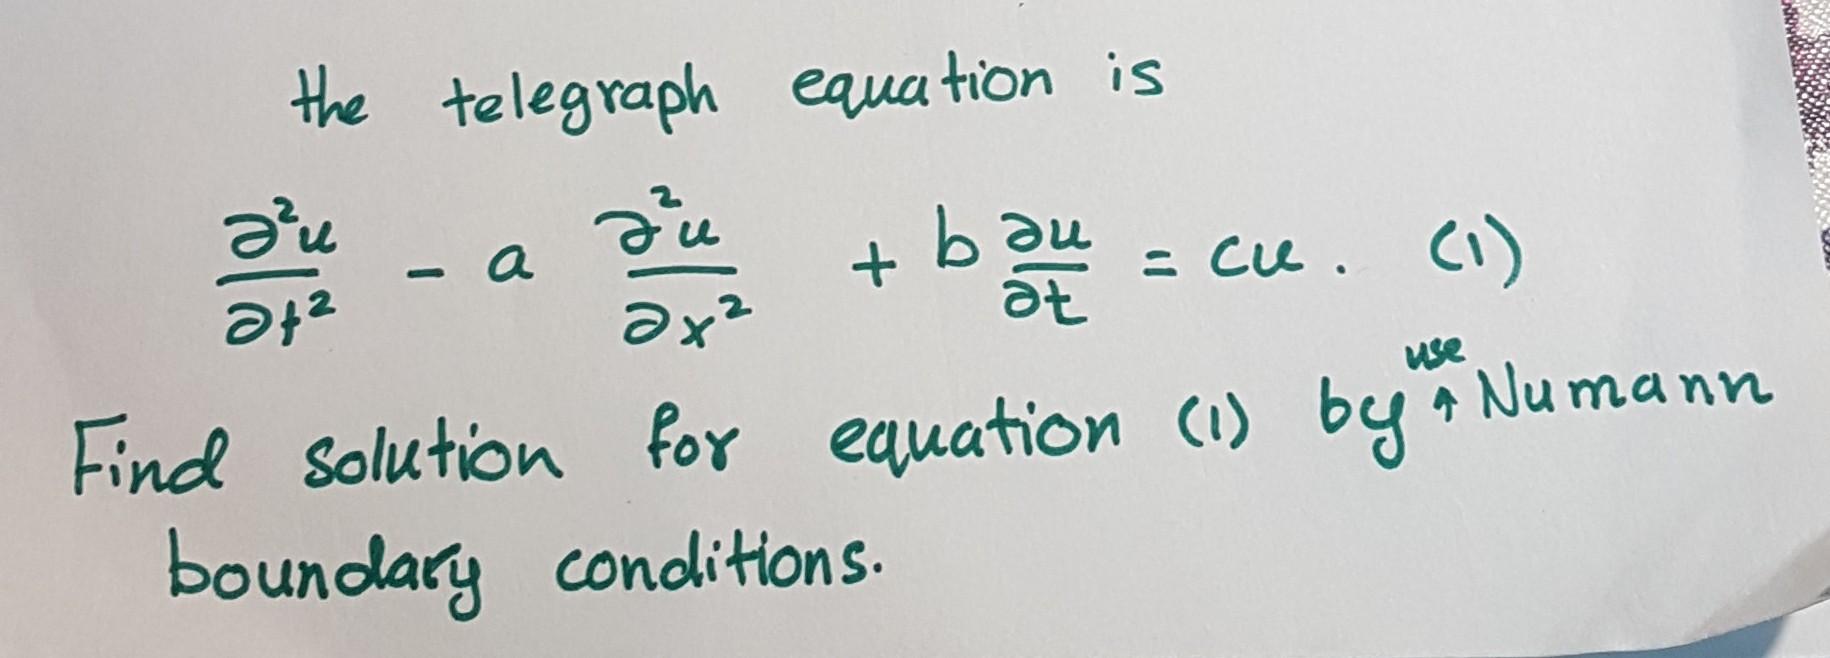 the telegraph equation is
∂²u/∂t² - a ∂²u/∂x² + b ∂u/∂t = cu. (1)
Find solution for equation (1) by use Numann
boundary conditions.